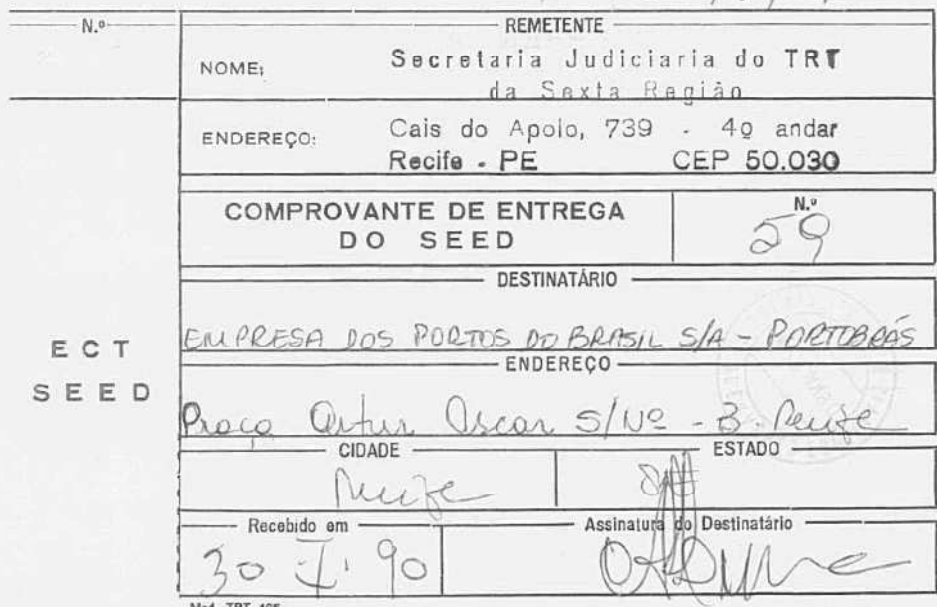 N.º
REMETENTE
NOME: Secretaria Judiciaria do TRT
da Sexta Região
ENDEREÇO: Cais do Apolo, 739 - 4º andar
Recife - PE CEP 50.030
COMPROVANTE DE ENTREGA
DO SEED
N.º
59
DESTINATÁRIO
EMPRESA DOS PORTOS DO BRASIL S/A - PORTOBRÁS
ECT
SEED
ENDEREÇO
Praça Artur Oscar S/Nº - B. Recife
CIDADE
Recife
ESTADO
PE
Recebido em
30 I 90
Assinatura do Destinatário
Mod. TRT